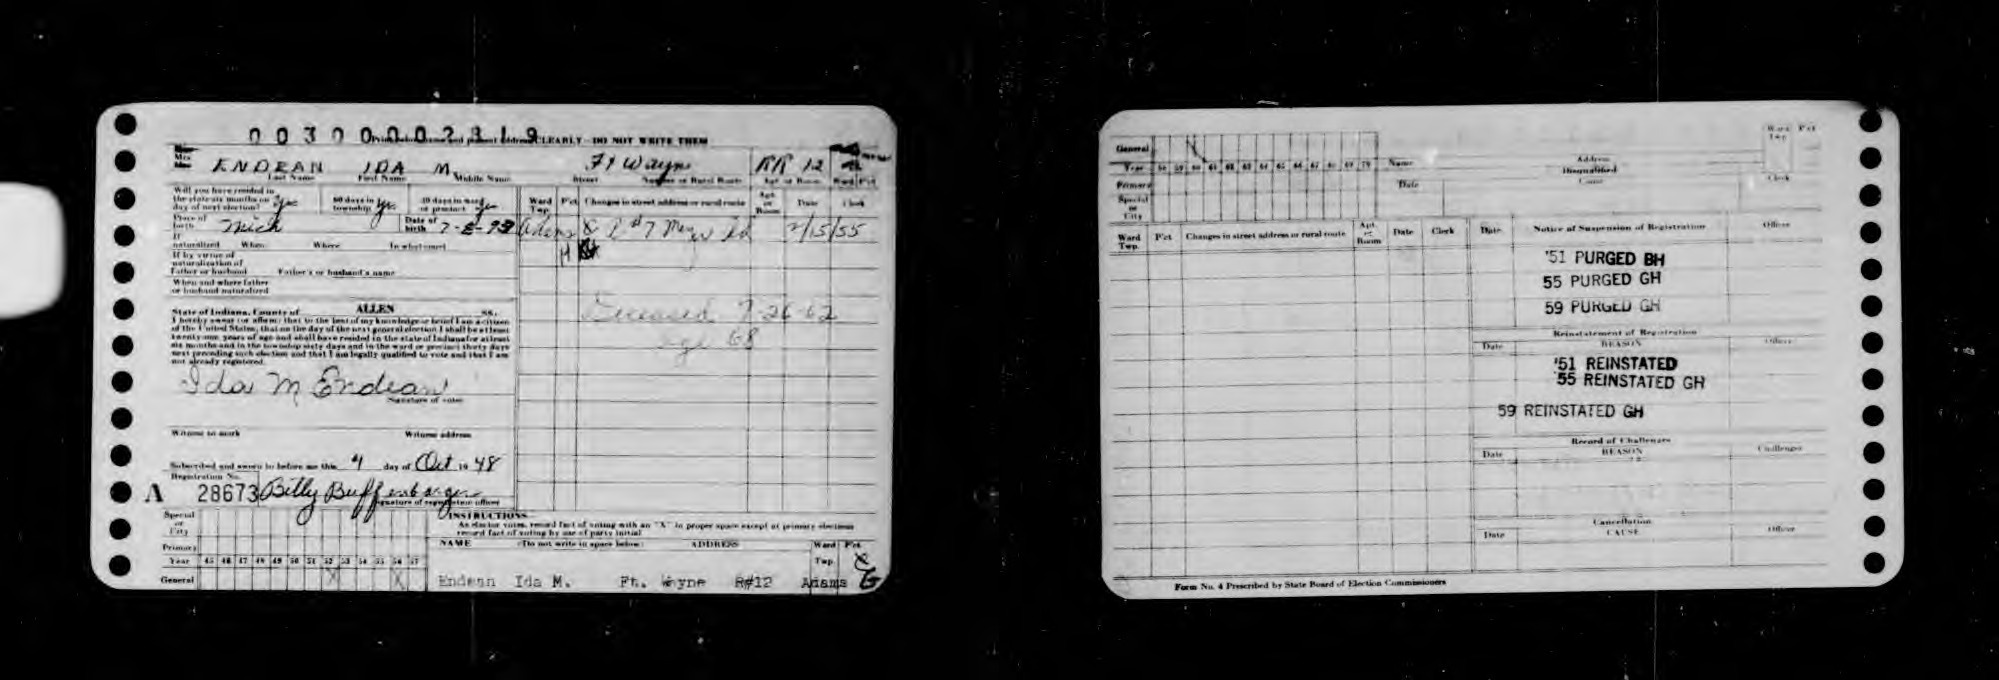 0030000002319
CLEARLY — DO NOT WRITE THEM
Mrs. ENDEAN IDA M. Ft Wayne RR 12
Last Name First Name Middle Name Street Number or Rural Route Apt. or Room Ward Pct
Will you have resided in
the state six months on
day of next election? Yes
60 days in
township Yes
30 days in ward
or precinct Yes
Place of
birth Mich
Date of
birth
If
naturalized When Where In what court
If by virtue of
naturalization of
Father or husband Father's or husband's name
When and where father
or husband naturalized
State of Indiana, County of ALLEN ss.
I hereby swear (or affirm) that to the best of my knowledge or belief I am a citizen
of the United States, that on the day of the next general election I shall be at least
twenty-one years of age and shall have resided in the state of Indiana for at least
six months and in the township sixty days and in the ward or precinct thirty days
next preceding such election and that I am legally qualified to vote and that I am
not already registered.
Ida M Endean
Signature of voter
Witness to mark Witness address
Subscribed and sworn to before me this 4 day of Oct 19 48
Registration No.
A 28673 Billy Buffenbarger
Signature of registration officer
Ward
Twp. P'ct Changes in street address or rural route Apt.
or
Room Date Clerk
Adams R #7 Meyer Rd 2/15/55
H
Deceased 7-26-62
age 68
Special
or
City
Primary
Year 45 46 47 48 49 50 51 52 53 54 55 56 57
General X X
INSTRUCTIONS
As elector votes, record fact of voting with an "X" in proper space except at primary elections
record fact of voting by use of party initial
NAME (Do not write in space below) ADDRESS Ward
Twp. P'ct
Endean Ida M. Ft. Wayne R#12 Adams G
General
Year 58 59 60 61 62 63 64 65 66 67 68 69 70
Primary
Special
or
City
Name Address
Ward
Twp. P'ct
Disqualified
Date Cause Clerk
Ward
Twp. P'ct Changes in street address or rural route Apt.
or
Room Date Clerk
Date Notice of Suspension of Registration Officer
'51 PURGED BH
55 PURGED GH
59 PURGED GH
Reinstatement of Registration
Date REASON Officer
'51 REINSTATED
55 REINSTATED GH
59 REINSTATED GH
Record of Challenges
Date REASON Challenger
Cancellation
Date CAUSE Officer
Form No. 4 Prescribed by State Board of Election Commissioners